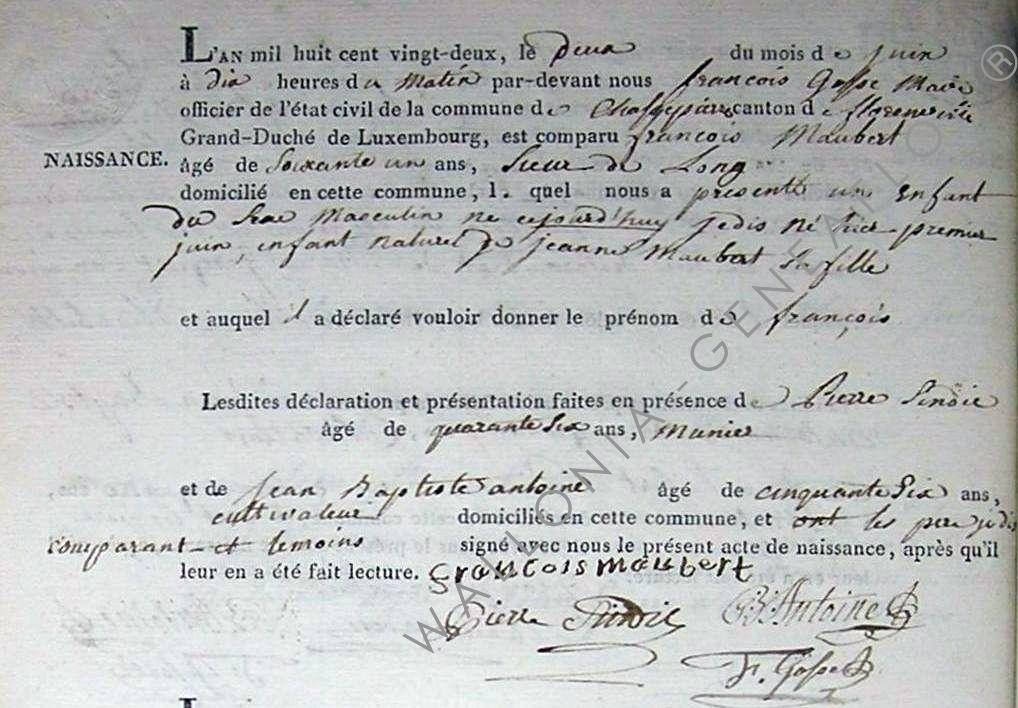 L'AN mil huit cent vingt-deux, le deux du mois de juin
à dix heures du matin par-devant nous françois Gosse Maire
officier de l'état civil de la commune de Chassepierre canton de florenville
Grand-Duché de Luxembourg, est comparu françois Maubert
NAISSANCE. âgé de soixante un ans, sieur de Long
domicilié en cette commune, l. quel nous a presenté un enfant
du sexe Masculin né cejourd'huy je dis né hier premier
juin, enfant naturel de jeanne Maubert sa fille
et auquel il a déclaré vouloir donner le prénom de françois
Lesdites déclaration et présentation faites en présence de Pierre
âgé de quarante six ans, munier
et de Jean Baptiste antoine âgé de cinquante six ans,
cultivateur domiciliés en cette commune, et ont les je dis
comparant et temoins signé avec nous le présent acte de naissance, après qu'il
leur en a été fait lecture. francois maubert
Pierre JB Antoine
F. Gosse
WALLONIA-GENEALOGIE
®